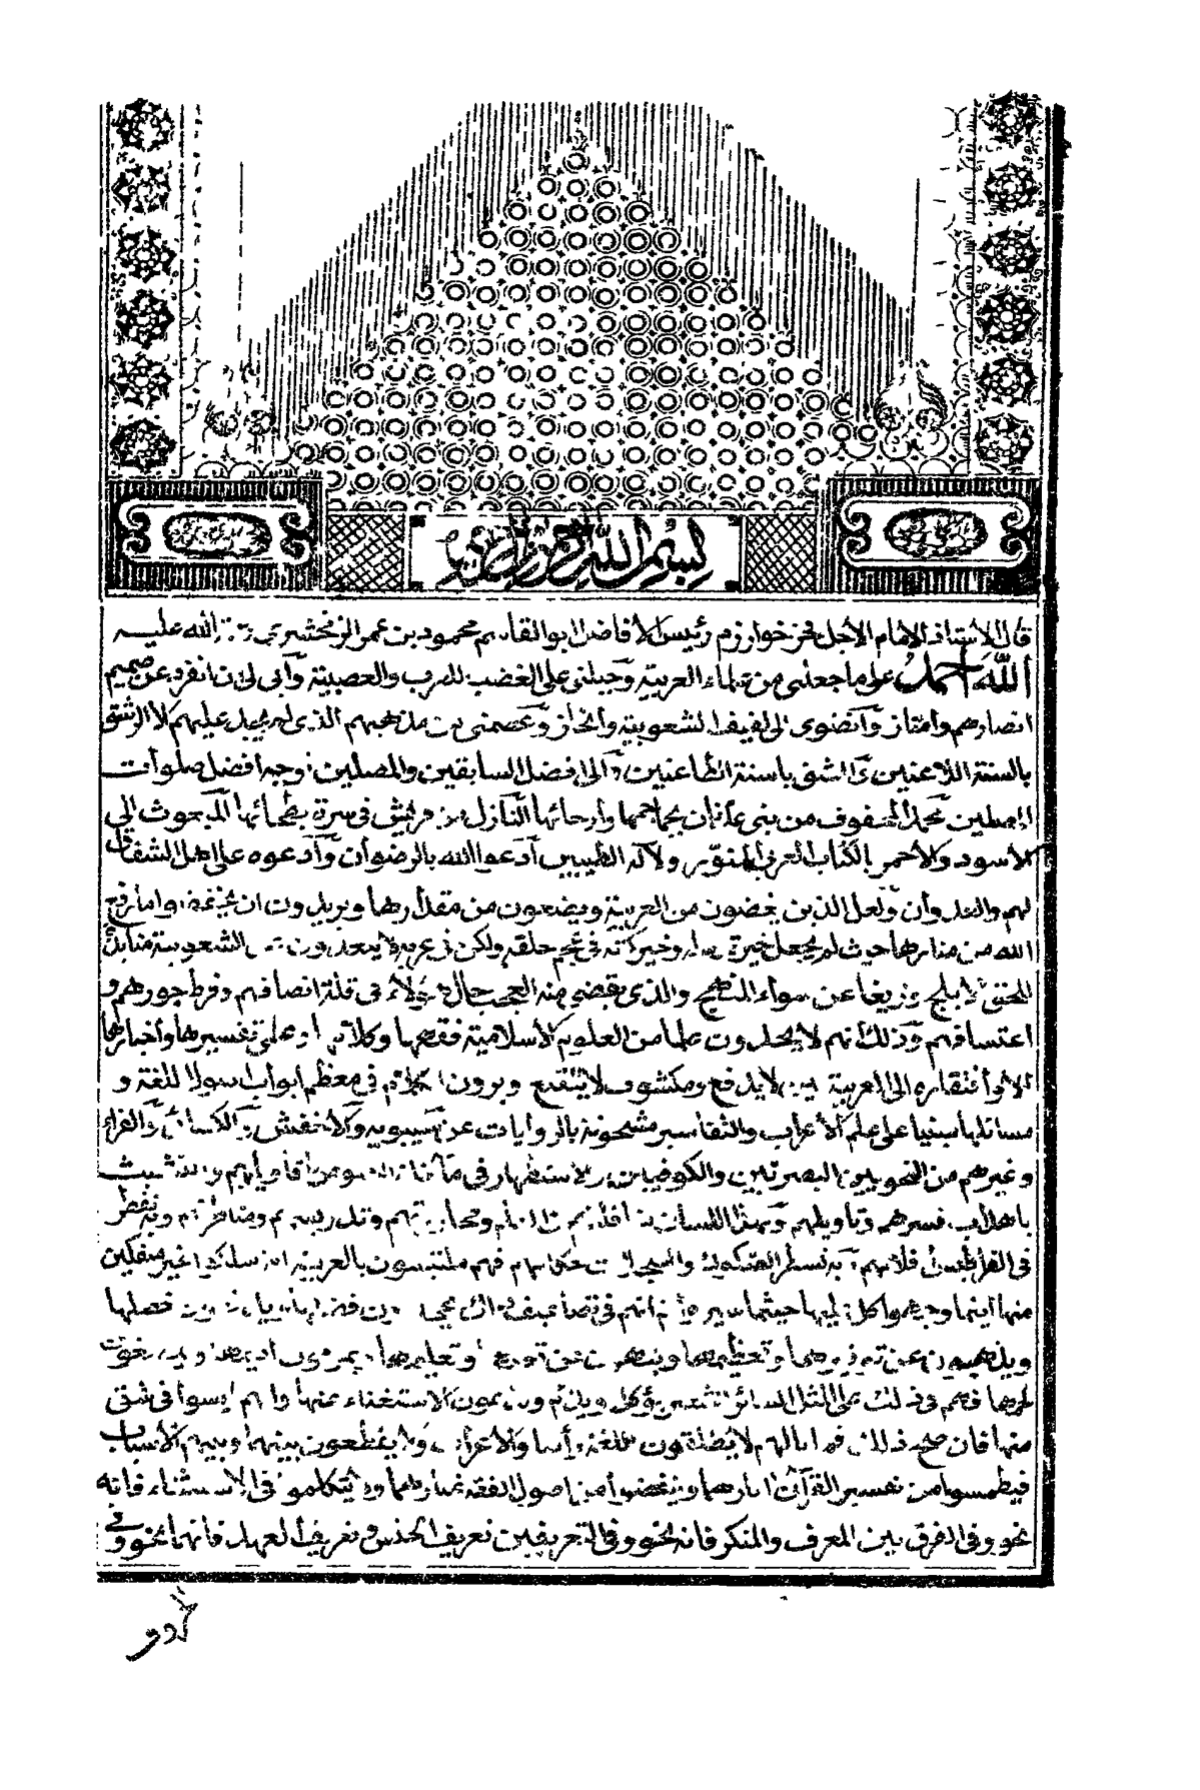 بسم الله الرحمن الرحيم
قال الأستاذ الإمام الأجل فخر خوارزم رئيس الأفاضل أبو القاسم محمود بن عمر الزمخشري رحمة الله عليه
الله أحمد على ما جعلني من علماء العربية وجبلني على الغضب للعرب والعصبية وأبى لي أن أنفرد عن صميم
أنصارهم وأمتاز وأنضوى إلى لفيف الشعوبية وأنحاز وعصمني من مذهبهم الذي لم يجد عليهم إلا الرشق
بالسنة اللاعنين والمشق باسنة الطاعنين وإلى أفضل السابقين والمصلين أوجه أفضل صلوات
المصلين محمد المحفوف من بني عدنان بجماجمها وأرحائها النازل من قريش في سرة بطحائها المبعوث إلى
الأسود والأحمر بالكتاب العربي المنور ولآله الطيبين أدعو الله بالرضوان وأدعوه على أهل الشقاق
لهم والعدوان ولعل الذين يغضون من العربية ويضعون من مقدارها ويريدون ان يخفضوا ما رفع
الله من منارها حيث لم يجعل خيرة رسله وخير كتبه في عجم خلقه ولكن في عربه لا يبعدون عن الشعوبية منابذة
للحق الأبلج وزيغا عن سواء المنهج والذي يقضى منه العجب حال هؤلاء في قلة انصافهم وفرط جورهم و
اعتسافهم وذلك انهم لا يجدون علما من العلوم الأسلامية فقهها وكلامها وعلمي تفسيرها وأخبارها
الا وأفتقاره إلى العربية بين لا يدفع ومكشوف لا يتقنع ويرون الكلام في معظم أبواب أصول الفقه و
مسائلها مبنيا على علم الأعراب والتفاسير مشحونة بالروايات عن سيبويه والأخفش والكسائي والفراء
وغيرهم من النحويين البصريين والكوفيين والاستظهار في مآخذ النصوص بأقاويلهم والتشبث
باهداب فسرهم وتأويلهم وبهذا اللسان مناقلتهم في العلم ومحاورتهم وتدريسهم ومناظرتهم وبه تقطر
في القراطيس أقلامهم وبه تسطر الصكوك والسجلات حكامهم فهم ملتبسون بالعربية اية سلكوا غير منفكين
منها اينما وجهوا كل عليها حيثما سيروا ثم انهم في تضاعيف ذلك يجحدون فضلها ويدفعون خصلها
ويذهبون عن توقيرها وتعظيمها وينهون عن تعلمها وتعليمها ويمزقون أديمها ويمضغون
لحمها فهم في ذلك على المثل السائر الشعير يؤكل ويذم ويدعون الاستغناء عنها وانهم ليسوا في شق
منها فان صح ذلك فما بالهم لا يطلقون اللغة رأسا والأعراب ولا يقطعون بينهما وبينهم الأسباب
فيطمسوا من تفسير القرآن اثارهما وينفضوا من اصول الفقه غبارهما ولا يتكلموا في الاستثناء فانه
نحو وفي الفرق بين المعرف والمنكر فانه نحو وفي التعريفين تعريف الجنس وتعريف العهد فانهما نحو وفي